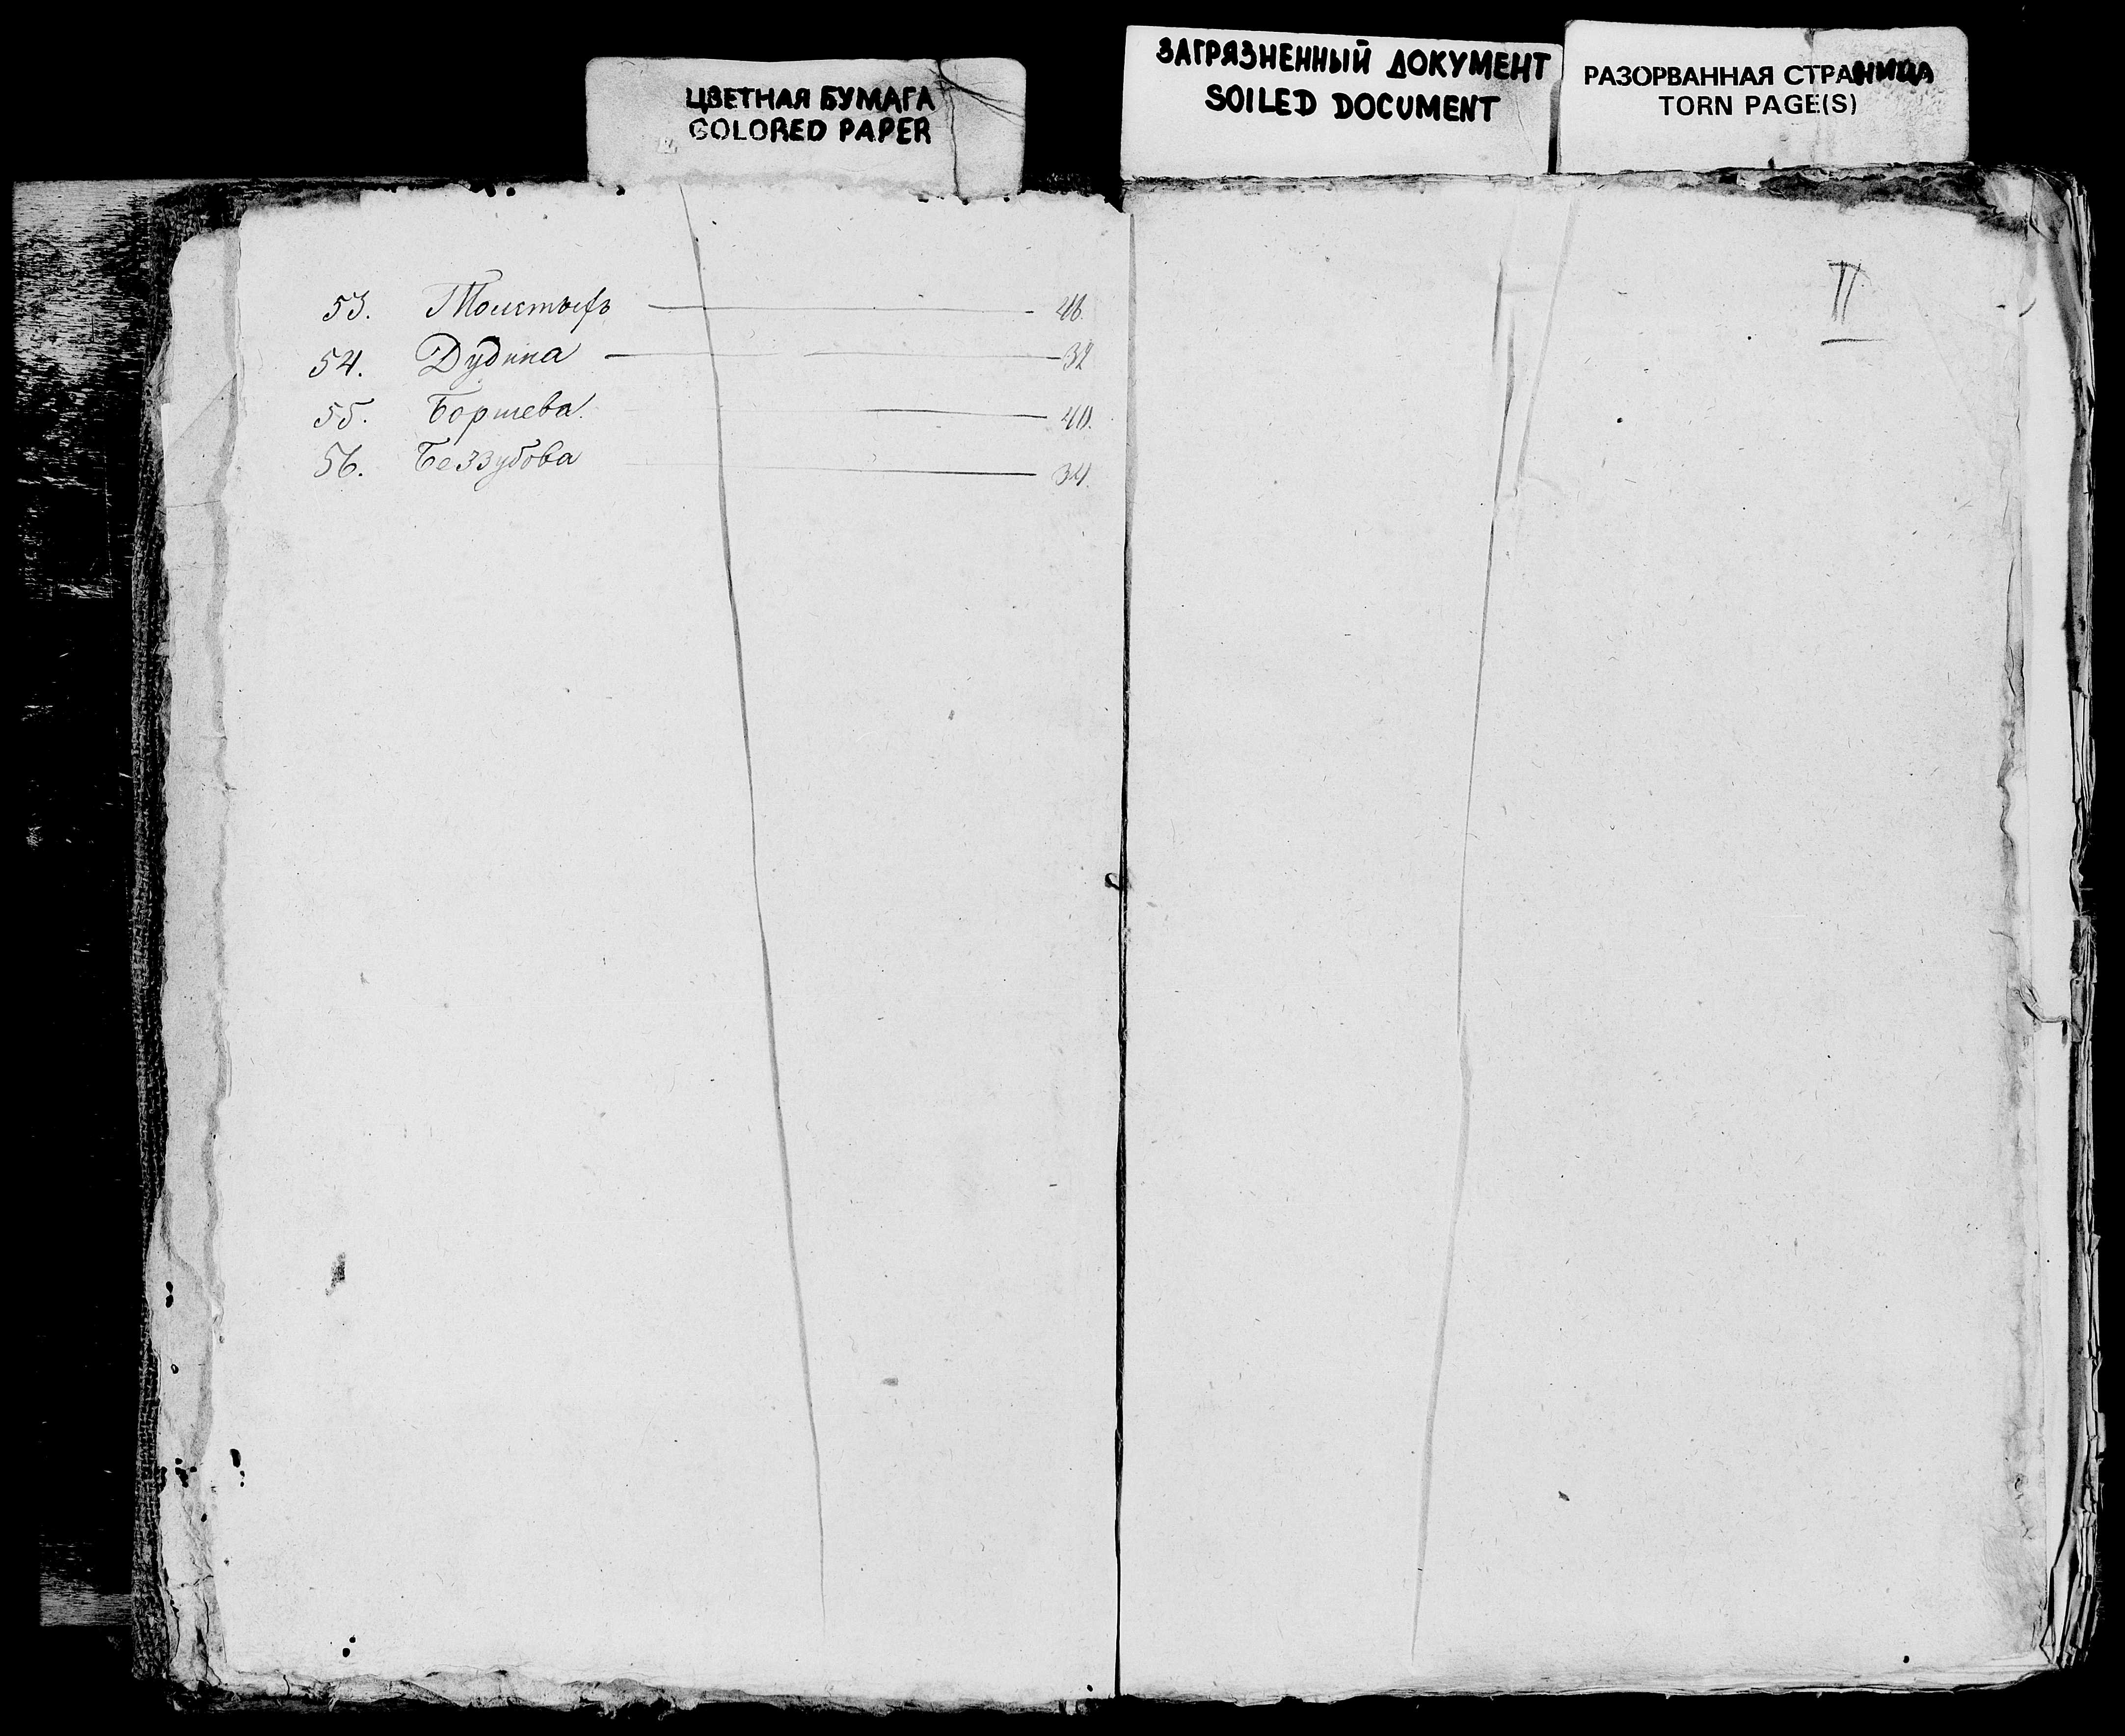 ЦВЕТНАЯ БУМАГА
COLORED PAPER
ЗАГРЯЗНЕННЫЙ ДОКУМЕНТ
SOILED DOCUMENT
РАЗОРВАННАЯ СТРАНИЦА
TORN PAGE(S)
53. Толстыхъ — 46.
54. Дудина — 32
55. Боршева. — 40.
56. Беззубова — 34.
II